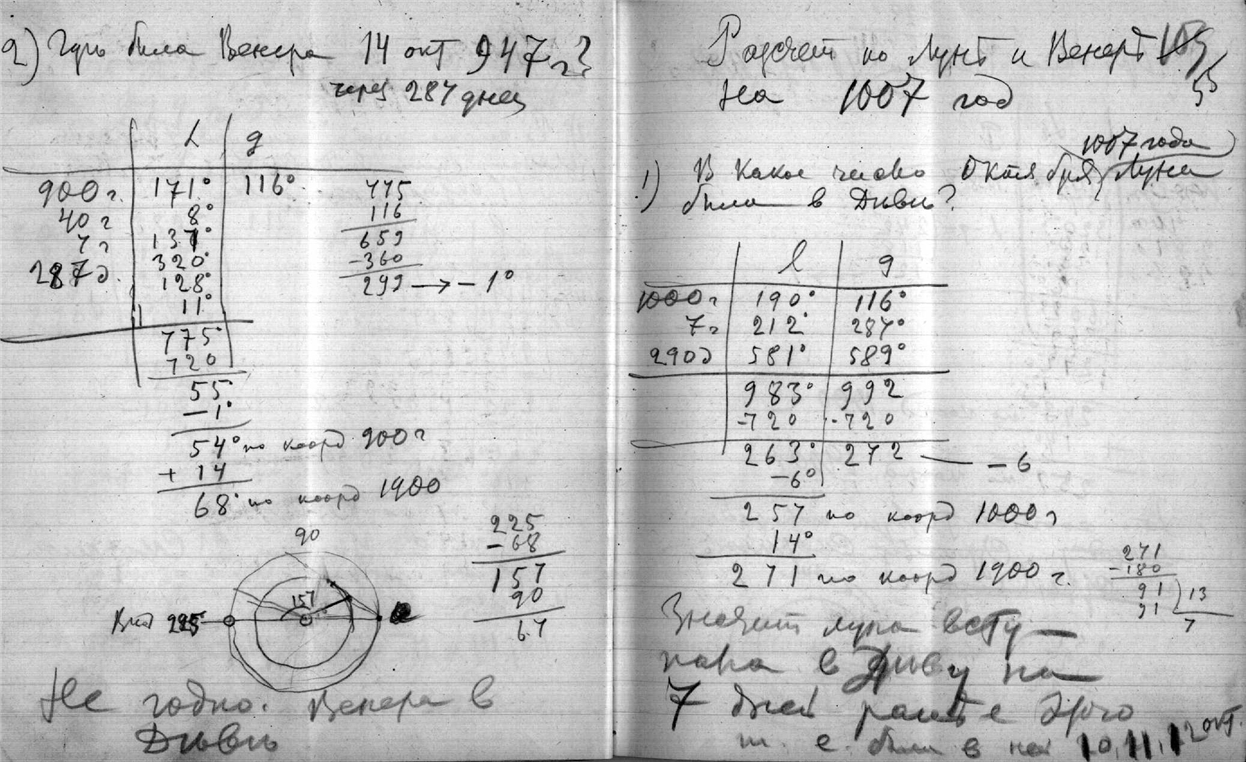 2) Где была Венера 14 окт 947 г?
через 287 дней
L g
900 г. 171° 116° 775
40 г 8° 116
7 г 137° 659
287 д. 320° -360
128° 299 → -1°
11°
775°
720
55
-1°
54° по коорд 900 г
+ 14
68° по коорд 1900
90
225
-68
157
90
67
157
225
Не годно. Венера в
Диви
Расчет по Луне и Венере 109
55
на 1007 год
1007 года
1) В какое число Октября Луна
была в Диви?
l g
1000 г. 190° 116°
7 г 212° 287°
290 д 581° 589°
983° 992
-720 -720
263° 272 — -6
-6°
257 по коорд 1000 г
14°
271 по коорд 1900 г.
271
-180
91 13
91 7
Значит луна всту-
пала в Диву на
7 дней раньше этого
т. е. была в ней 10, 11, 12 окт.